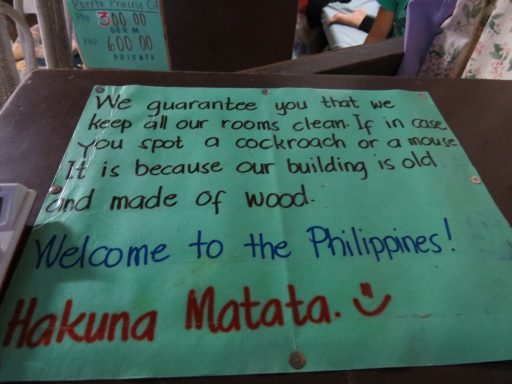 Puerto Princesa
Php 300.00
DORM
Php 600.00
PRIVATE
We guarantee you that we
keep all our rooms clean. If in case
you spot a cockroach or a mouse
It is because our building is old
and made of wood.
Welcome to the Philippines!
Hakuna Matata.